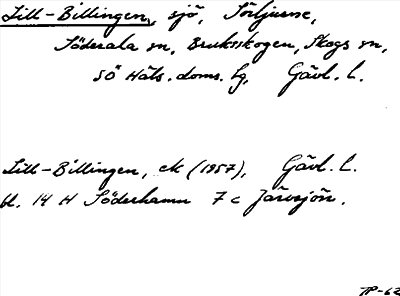 Lill-Billingen, sjö, Sörljusne,
Söderala sn, Bruksskogen, Skogs sn,
SÖ Häls. doms. lg, Gävl. L.
Lill-Billingen, ek (1957), Gävl. L.
bl. 14 H Söderhamn 7 c Järvsjön.
TP-62